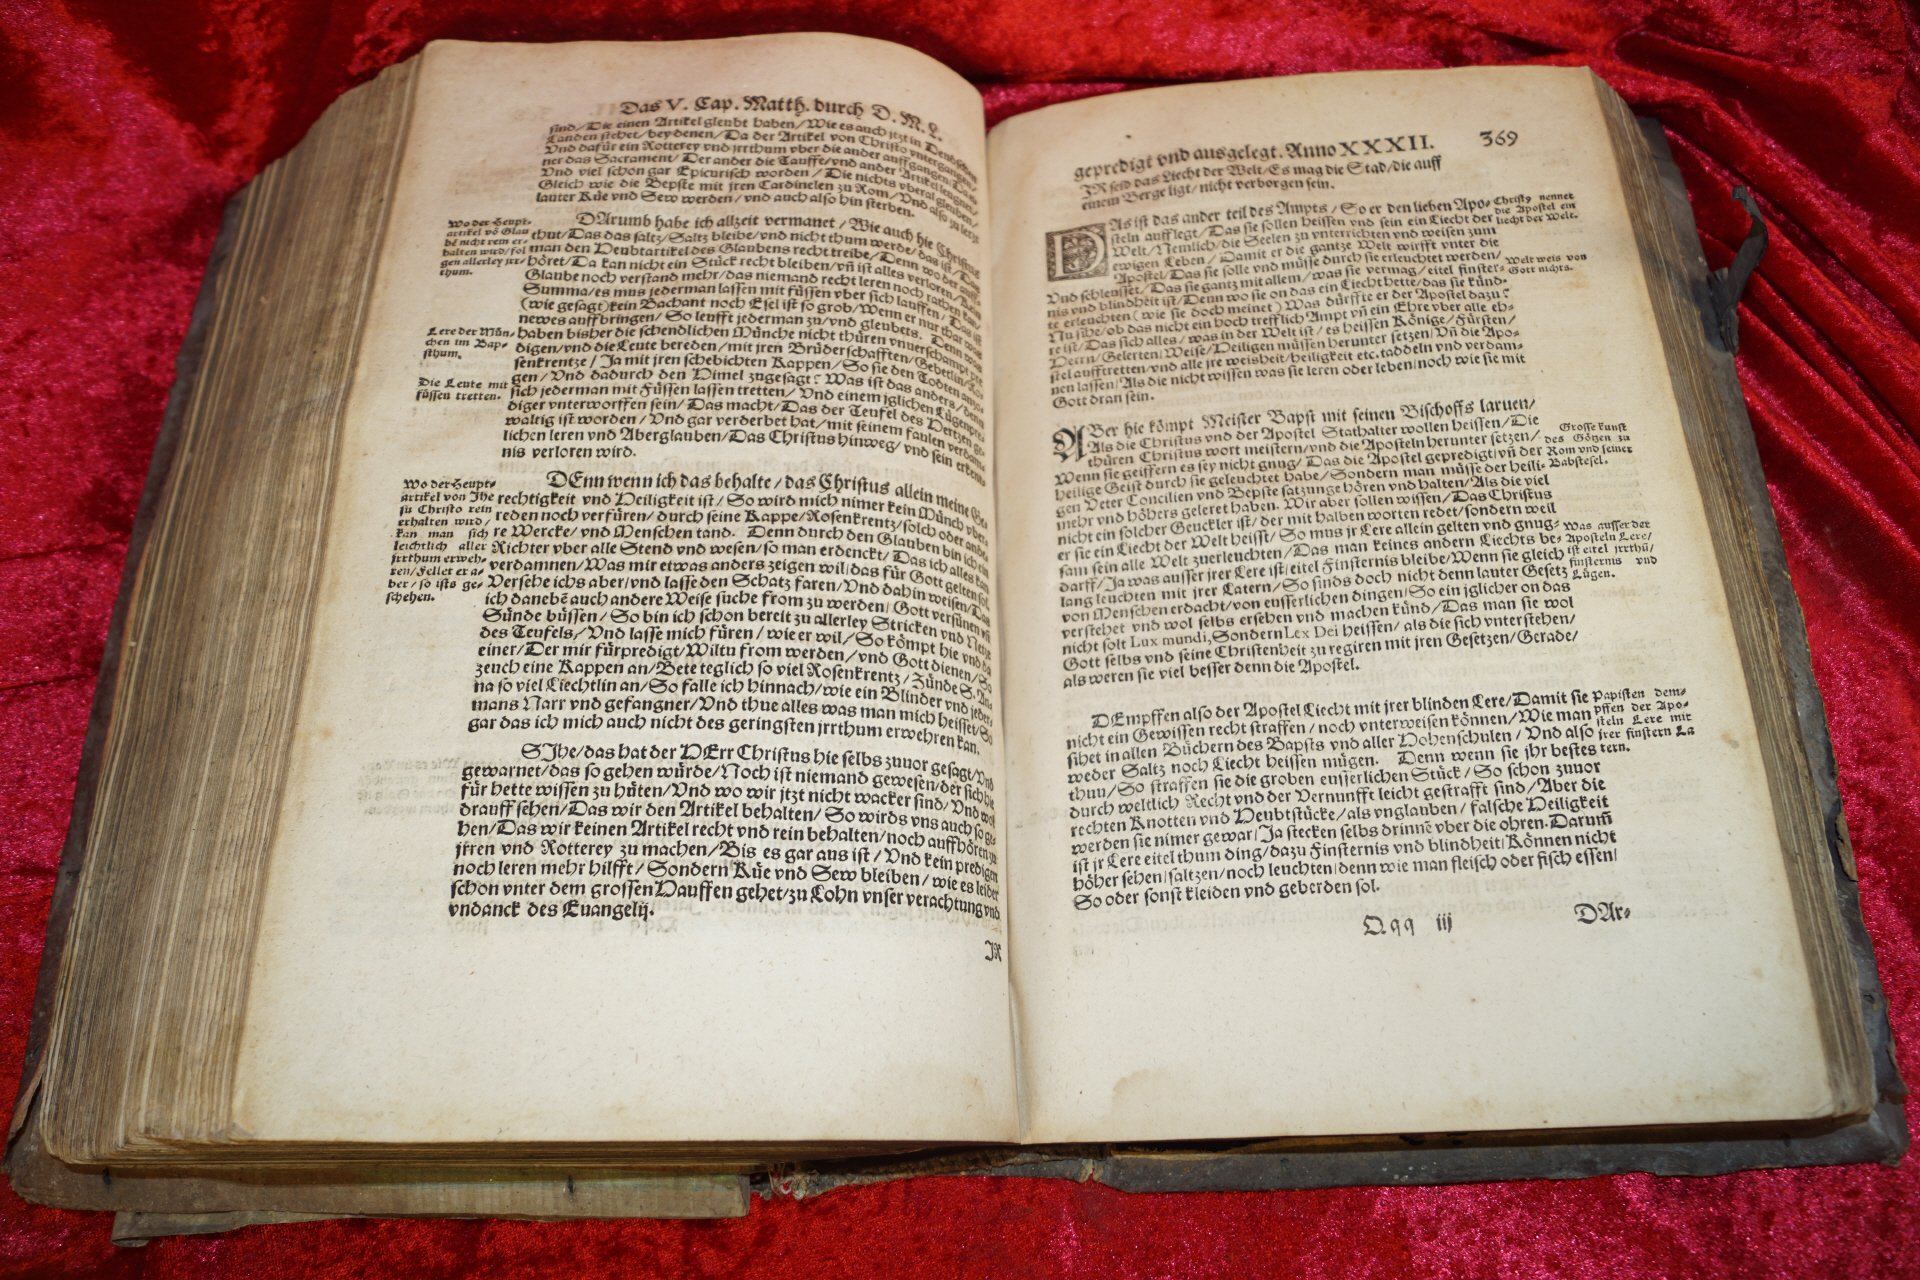 Das V. Cap. Matth. durch D. M. L.
sind/Die einen Artikel gleubt haben/Wie es auch jtzt in Deudschen
Landen stehet/bey denen/Da der Artikel von Christo vntergangen/
Vnd dafür ein Rotterey vnd jrrthum vber die ander auffgangen/Das
ner das Sacrament/Der ander die Tauffe/vnd ander Artikel lengnet/
Vnd viel schon gar Epicurisch worden/Die nichts vberal gleuben/
Gleich wie die Bepste mit jren Cardinelen zu Rom/Vnd also zu letzt
lauter Küe vnd Sew werden/vnd auch also hin sterben.
Wo der Heupt-
artikel võ Glau
bẽ nicht rein er-
halten wird/fol
gen allerley jrr-
thum.
DArumb habe ich allzeit vermanet/Wie auch hie Christus
thut/Das das saltz/Saltz bleibe/vnd nicht thum werde/das ist/Das
man den Heubtartikel des Glaubens recht treibe/Denn wo der auff-
höret/Da kan nicht ein Stück recht bleiben/vñ ist alles verloren/Kein
Glaube noch verstand mehr/das niemand recht leren noch rathen kan/
Summa/es mus jederman lassen mit füssen vber sich lauffen/Das ist
(wie gesagt)kein Bachant noch Esel ist so grob/Wenn er nur thar was
newes auffbringen/So leufft jederman zu/vnd gleubets. Denn was
Lere der Mün-
chen im Bap-
sthum.
haben bisher die schendlichen Münche nicht thüren vnuerschampt pre
digen/vnd die Leute bereden/mit jren Brüderschafften/Gebetlin/Ro-
senkrentze/Ja mit jren schebichten Kappen/So sie den Todten anzo-
gen/Vnd dadurch den Himel zugesagt? Was ist das anders/denn
Die Leute mit
füssen tretten.
sich jederman mit Füssen lassen tretten/Vnd einem jglichen Lügenpre-
diger vnterworffen sein/Das macht/Das der Teufel des Hertzen ge-
waltig ist worden/Vnd gar verderbet hat/mit seinem faulen verdam-
lichen leren vnd Aberglauben/Das Christus hinweg/vnd sein erkent-
nis verloren wird.
Wo der Heupt-
artikel von Jhe
su Christo rein
erhalten wird/
kan man sich
leichtlich aller
jrrthum erweh-
ren/Fellet er a-
ber/so ists ge-
schehen.
DEnn wenn ich das behalte/das Christus allein meine Ge-
rechtigkeit vnd Heiligkeit ist/So wird mich nimer kein Münch vber-
reden noch verfüren/durch seine Kappe/Rosenkrentz/solch oder ande-
re Wercke/vnd Menschen tand. Denn durch den Glauben bin ich ein
Richter vber alle Stend vnd wesen/so man erdenckt/Das ich alles kan
verdamnen/Was mir etwas anders zeigen wil/das für Gott gelten sol.
Versehe ichs aber/vnd lasse den Schatz faren/Vnd dahin weisen/Das
ich danebẽ auch andere Weise suche from zu werden/Gott versünen vñ
Sünde büssen/So bin ich schon bereit zu allerley Stricken vnd Netze
des Teufels/Vnd lasse mich füren/wie er wil/So kömpt hie vnd da
einer/Der mir fürpredigt/Wiltu from werden/vnd Gott dienen/So
zeuch eine Kappen an/Bete teglich so viel Rosenkrentz/Zünde S. An-
na so viel Liechtlin an/So falle ich hinnach/wie ein Blinder vnd jeder-
mans Narr vnd gefangner/Vnd thue alles was man mich heisset/So
gar das ich mich auch nicht des geringsten jrrthum erwehren kan.
SJhe/das hat der HErr Christus hie selbs zuuor gesagt/Vnd
gewarnet/das so gehen würde/Noch ist niemand gewesen/der sich hie
für hette wissen zu hüten/Vnd wo wir jtzt nicht wacker sind/Vnd wol
drauff sehen/Das wir den Artikel behalten/So wirds vns auch so ge-
hen/Das wir keinen Artikel recht vnd rein behalten/noch auffhören zu
jrren vnd Rotterey zu machen/Bis es gar aus ist/Vnd kein predigen
noch leren mehr hilfft/Sondern Küe vnd Sew bleiben/wie es leider
schon vnter dem grossen Hauffen gehet/zu Lohn vnser verachtung vnd
vndanck des Euangelij.
JR
gepredigt vnd ausgelegt. Anno XXXII. 369
JR seid das Liecht der Welt/Es mag die Stad/die auff
einem Berge ligt/nicht verborgen sein.
DAs ist das ander teil des Ampts/So er den lieben Apo-
steln aufflegt/Das sie sollen heissen vnd sein ein Liecht der
Welt/Nemlich/die Seelen zu vnterrichten vnd weisen zum
ewigen Leben/Damit er die gantze Welt wirfft vnter die
Apostel/Das sie solle vnd müsse durch sie erleuchtet werden/
Vnd schleusset/Das sie gantz mit allem/was sie vermag/eitel finster-
nis vnd blindheit ist/Denn wo sie on das ein Liecht hette/das sie künd-
te erleuchten(wie sie doch meinet)Was dürffte er der Apostel dazu?
Nu sihe/ob das nicht ein hoch trefflich Ampt vñ ein Ehre vber alle eh-
re ist/Das sich alles/was in der Welt ist/es heissen Könige/Fürsten/
Herrn/Gelerten/Weise/Heiligen müssen herunter setzen/Vñ die Apo-
stel aufftretten/vnd alle jre weisheit/heiligkeit etc. taddeln vnd verdam-
nen lassen/Als die nicht wissen was sie leren oder leben/noch wie sie mit
Gott dran sein.
Christꝰ nennet
die Apostel ein
liecht der Welt.
Welt weis von
Gott nichts.
ABer hie kömpt Meister Bapst mit seinen Bischoffs laruen/
Als die Christus vnd der Apostel Stathalter wollen heissen/Die
thüren Christus wort meistern/vnd die Aposteln herunter setzen/
Wenn sie geiffern es sey nicht gnug/Das die Apostel gepredigt/vñ der
heilige Geist durch sie geleuchtet habe/Sondern man müsse der heili-
gen Veter Concilien vnd Bepste satzunge hören vnd halten/Als die viel
mehr vnd höhers geleret haben. Wir aber sollen wissen/Das Christus
nicht ein solcher Geuckler ist/der mit halben worten redet/sondern weil
er sie ein Liecht der Welt heisst/So mus jr Lere allein gelten vnd gnug-
sam sein alle Welt zuerleuchten/Das man keines andern Liechts be-
darff/Ja was ausser jrer Lere ist/eitel Finsternis bleibe/Wenn sie gleich
lang leuchten mit jrer Latern/So sinds doch nicht denn lauter Gesetz
von Menschen erdacht/von eusserlichen dingen/So ein jglicher on das
verstehet vnd wol selbs ersehen vnd machen künd/Das man sie wol
nicht solt Lux mundi, Sondern Lex Dei heissen/als die sich vnterstehen/
Gott selbs vnd seine Christenheit zu regiren mit jren Gesetzen/Gerade/
als weren sie viel besser denn die Apostel.
Grosse kunst
des Götzen zu
Rom vnd seiner
Babstesel.
Was ausser der
Aposteln Lere/
ist eitel jrrthũ/
finsternis vnd
Lügen.
DEmpffen also der Apostel Liecht mit jrer blinden Lere/Damit sie
nicht ein Gewissen recht straffen/noch vnterweisen können/Wie man
sihet in allen Büchern des Bapsts vnd aller Hohenschulen/Vnd also
weder Saltz noch Liecht heissen mügen. Denn wenn sie jhr bestes
thun/So straffen sie die groben eusserlichen Stück/So schon zuuor
durch weltlich Recht vnd der Vernunfft leicht gestrafft sind/Aber die
rechten Knotten vnd Heubtstücke/als vnglauben/falsche Heiligkeit
werden sie nimer gewar/Ja stecken selbs drinnẽ vber die ohren. Darum̃
ist jr Lere eitel thum ding/dazu Finsternis vnd blindheit/Können nicht
höher sehen/saltzen/noch leuchten/denn wie man fleisch oder fisch essen/
So oder sonst kleiden vnd geberden sol.
Papisten dem-
pffen der Apo-
steln Lere mit
jrer finstern La
tern.
Qqq iij DAr-